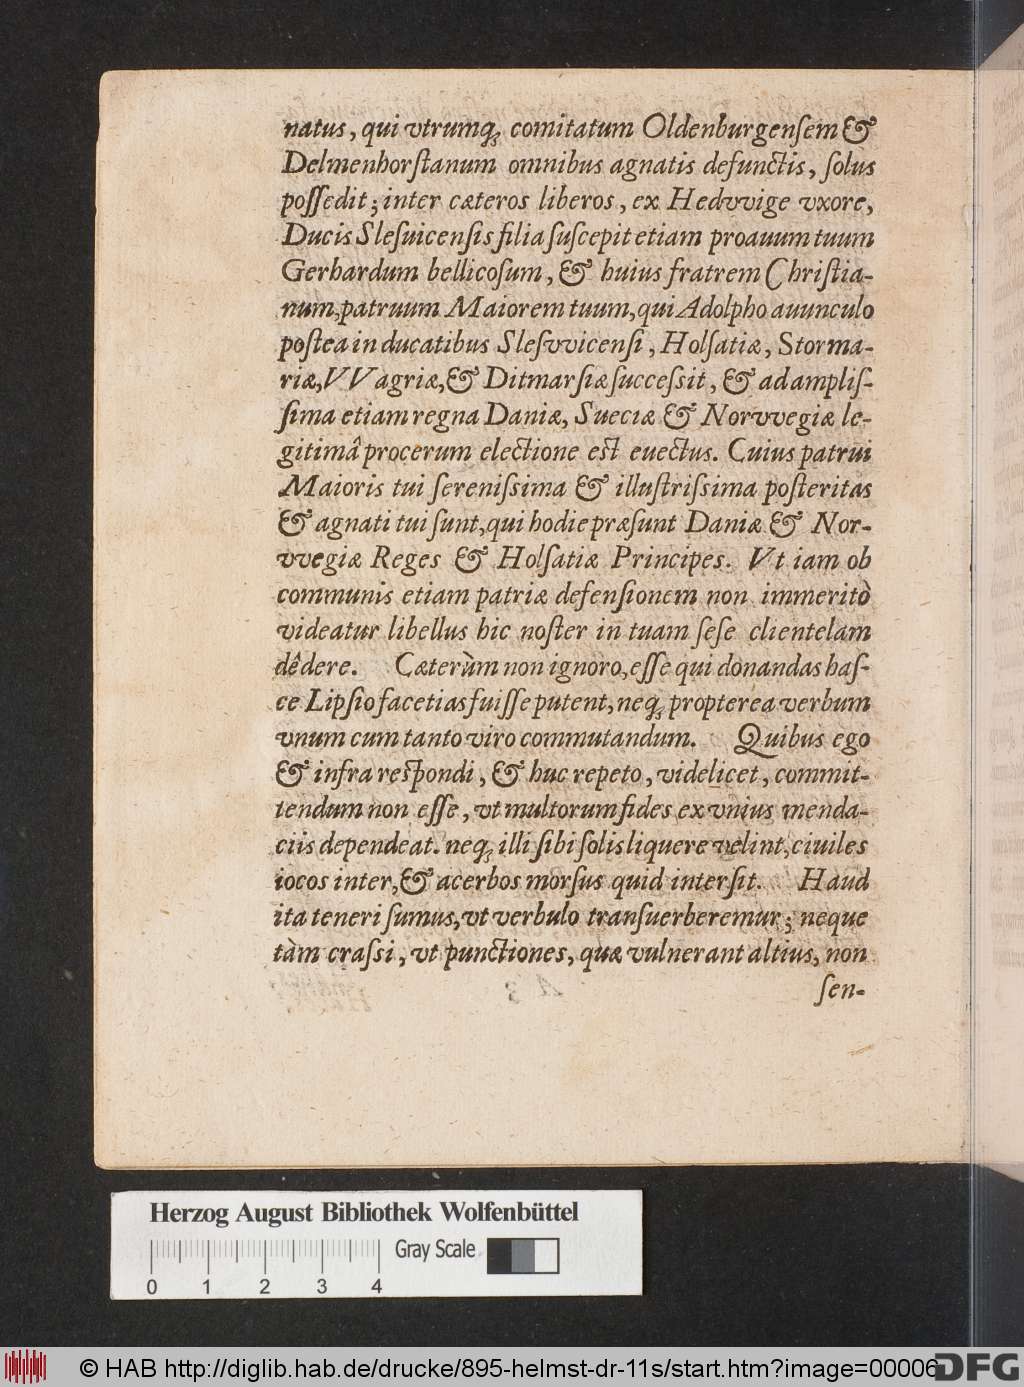 natus, qui vtrumq́; comitatum Oldenburgenſem &
Delmenhorſtanum omnibus agnatis defunctis, ſolus
poſſedit; inter cæteros liberos, ex Hedvvige vxore,
Ducis Sleſuicenſis filia ſuſcepit etiam proauum tuum
Gerhardum bellicoſum, & huius fratrem Chriſtia-
num, patruum Maiorem tuum, qui Adolpho auunculo
poſtea in ducatibus Sleſvvicenſi, Holſatiæ, Storma-
riæ, VVagriæ, & Ditmarſiæ ſucceſsit, & ad ampliſ-
ſima etiam regna Daniæ, Sueciæ & Norvvegiæ le-
gitimâ procerum electione eſt euectus. Cuius patrui
Maioris tui ſereniſsima & illuſtriſsima poſteritas
& agnati tui ſunt, qui hodie præſunt Daniæ & Nor-
vvegiæ Reges & Holſatiæ Principes. Vt iam ob
communis etiam patriæ defenſionem non immeritò
videatur libellus hic noſter in tuam ſeſe clientelam
dêdere. Cæterùm non ignoro, eſſe qui donandas haſ-
ce Lipſio facetias fuiſſe putent, neq́; propterea verbum
vnum cum tanto viro commutandum. Quibus ego
& infra reſpondi, & huc repeto, videlicet, commit-
tendum non eſſe, vt multorum fides ex vnius menda-
ciis dependeat. neq́; illi ſibi ſolis liquere velint, ciuiles
iocos inter, & acerbos morſus quid interſit. Haud
ita teneri ſumus, vt verbulo tranſuerberemur; neque
tàm craſsi, vt punctiones, quæ vulnerant altius, non
ſen-
Herzog August Bibliothek Wolfenbüttel
Gray Scale
0 1 2 3 4
© HAB http://diglib.hab.de/drucke/895-helmst-dr-11s/start.htm?image=00006
DFG